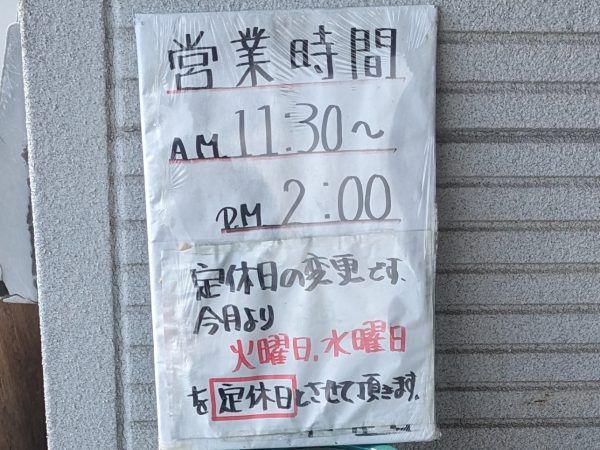 営業時間
A.M. 11:30～
P.M 2:00
定休日の変更です、
今月より
火曜日、水曜日
を定休日とさせて頂きます。